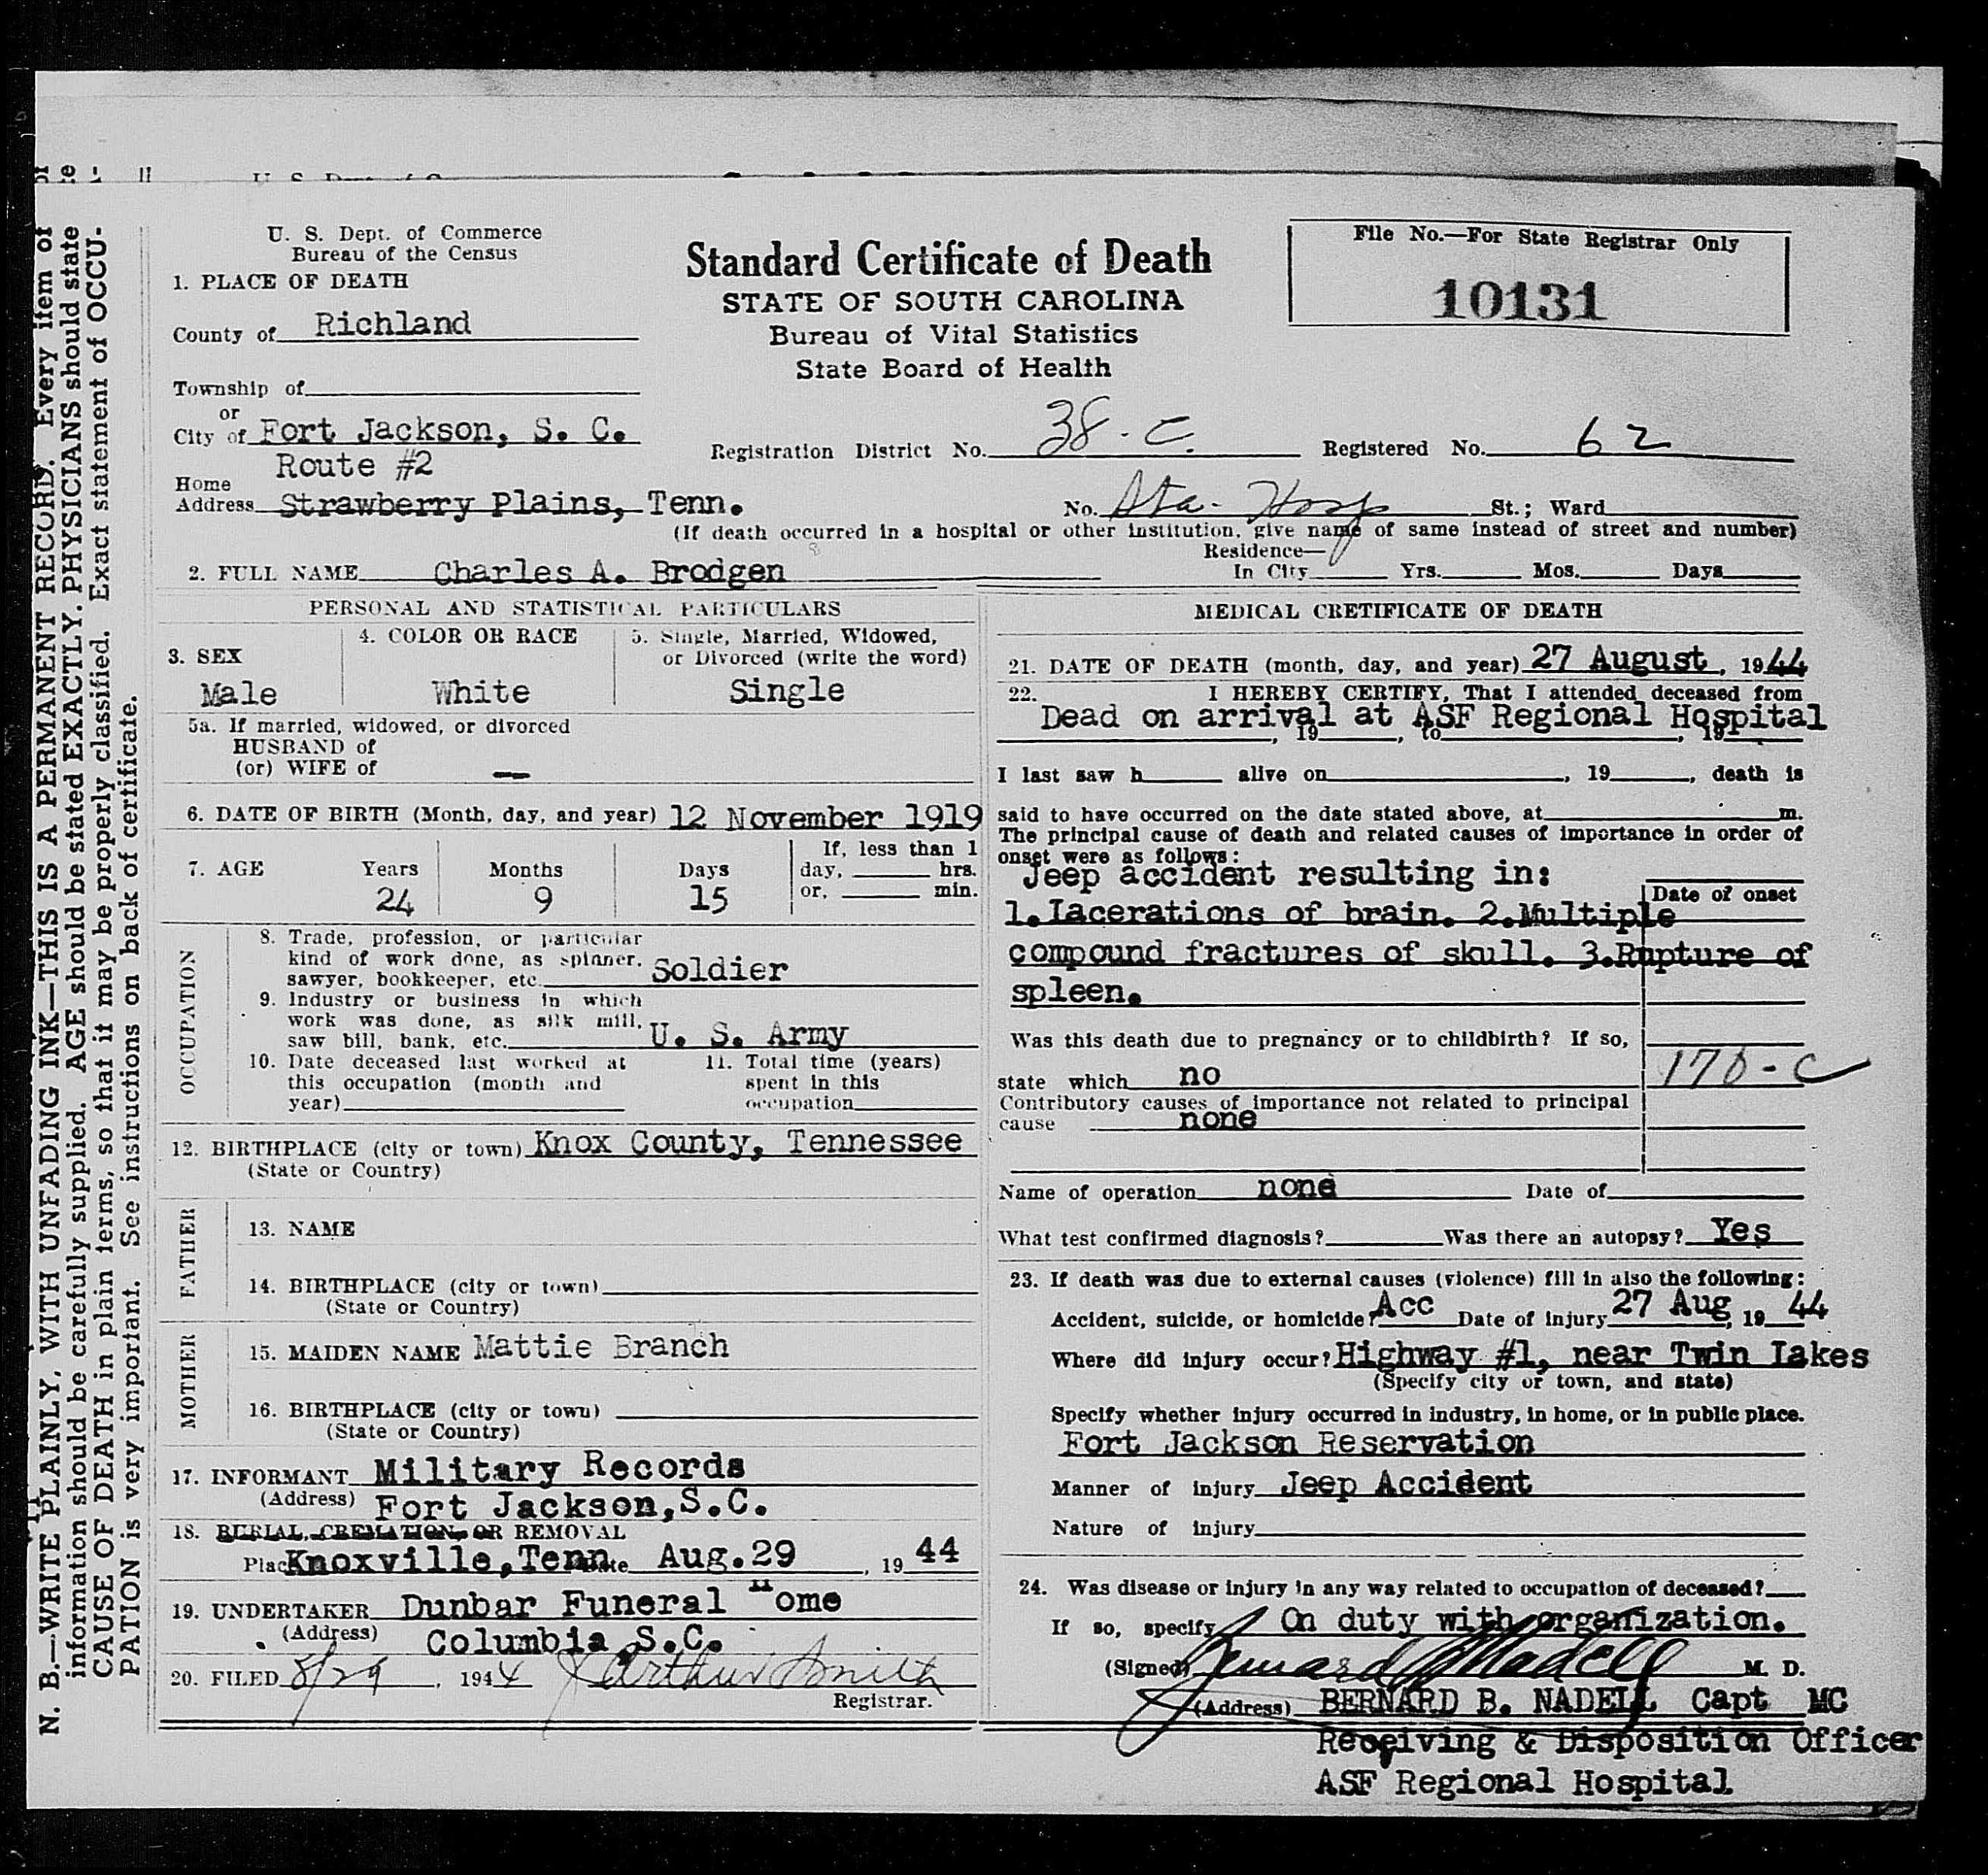 U. S. Dept. of Commerce
Bureau of the Census
Standard Certificate of Death
STATE OF SOUTH CAROLINA
Bureau of Vital Statistics
State Board of Health
File No.—For State Registrar Only
10131
1. PLACE OF DEATH
County of Richland
Township of
or
City of Fort Jackson, S. C.
Registration District No. 38-C. Registered No. 62
Route #2
Home
Address Strawberry Plains, Tenn.
No. Sta- Hosp St.; Ward
(If death occurred in a hospital or other institution, give name of same instead of street and number)
Residence—
In City Yrs. Mos. Days
2. FULL NAME Charles A. Brodgen
PERSONAL AND STATISTICAL PARTICULARS
3. SEX
Male
4. COLOR OR RACE
White
5. Single, Married, Widowed,
or Divorced (write the word)
Single
5a. If married, widowed, or divorced
HUSBAND of
(or) WIFE of —
6. DATE OF BIRTH (Month, day, and year) 12 November 1919
7. AGE
Years
24
Months
9
Days
15
If, less than 1
day, hrs.
or, min.
OCCUPATION
8. Trade, profession, or particular
kind of work done, as spinner,
sawyer, bookkeeper, etc. Soldier
9. Industry or business in which
work was done, as silk mill,
saw bill, bank, etc. U. S. Army
10. Date deceased last worked at
this occupation (month and
year)
11. Total time (years)
spent in this
occupation
12. BIRTHPLACE (city or town) Knox County, Tennessee
(State or Country)
FATHER
13. NAME
14. BIRTHPLACE (city or town)
(State or Country)
MOTHER
15. MAIDEN NAME Mattie Branch
16. BIRTHPLACE (city or town)
(State or Country)
17. INFORMANT Military Records
(Address) Fort Jackson,S.C.
18. BURIAL, CREMATION, OR REMOVAL
Place Knoxville,Tenn Date Aug.29, 19 44
19. UNDERTAKER Dunbar Funeral Home
(Address) Columbia S.C.
20. FILED 8/29, 1944 J Arthur Smith
Registrar.
MEDICAL CRETIFICATE OF DEATH
21. DATE OF DEATH (month, day, and year) 27 August, 1944
22. I HEREBY CERTIFY, That I attended deceased from
Dead on arrival at ASF Regional Hospital
, 19 , to , 19
I last saw h alive on , 19 , death is
said to have occurred on the date stated above, at m.
The principal cause of death and related causes of importance in order of
onset were as follows:
Jeep accident resulting in:
Date of onset
1.Lacerations of brain. 2.Multiple
compound fractures of skull. 3.Rupture of
spleen.
Was this death due to pregnancy or to childbirth? If so,
state which no
170-C
Contributory causes of importance not related to principal
cause none
Name of operation none Date of
What test confirmed diagnosis? Was there an autopsy? Yes
23. If death was due to external causes (violence) fill in also the following:
Accident, suicide, or homicide? Acc Date of injury 27 Aug, 19 44
Where did injury occur? Highway #1, near Twin Lakes
(Specify city or town, and state)
Specify whether injury occurred in industry, in home, or in public place.
Fort Jackson Reservation
Manner of injury Jeep Accident
Nature of injury
24. Was disease or injury in any way related to occupation of deceased?
If so, specify On duty with organization.
(Signed) Bernard B Nadell M. D.
(Address) BERNARD B. NADELL Capt MC
Receiving & Disposition Officer
ASF Regional Hospital
N. B.—WRITE PLAINLY, WITH UNFADING INK—THIS IS A PERMANENT RECORD. Every item of
information should be carefully supplied. AGE should be stated EXACTLY. PHYSICIANS should state
CAUSE OF DEATH in plain terms, so that it may be properly classified. Exact statement of OCCU-
PATION is very important. See instructions on back of certificate.